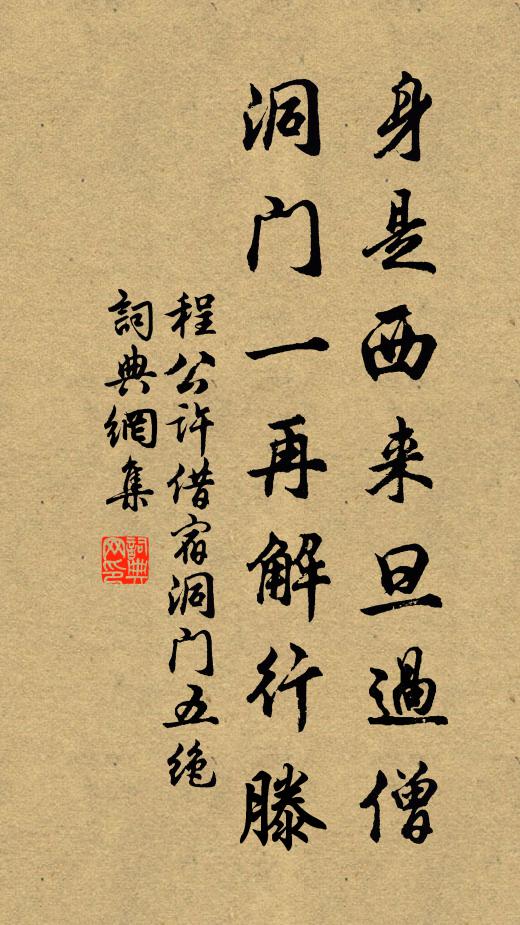 身是西来旦過僧
洞门一再解行滕
程公许借宿洞门五绝
詞典網集
詞典网印